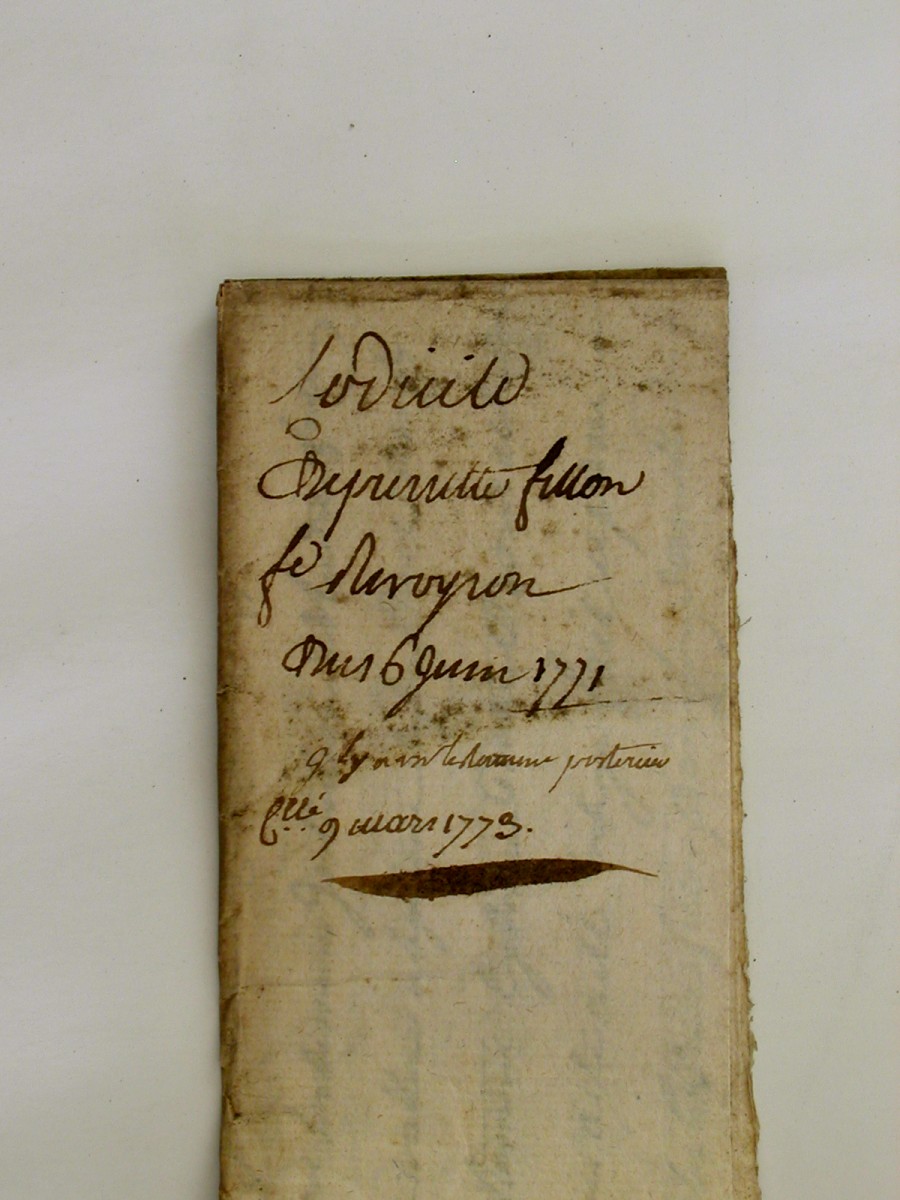 Codicile
De pierrette fillon
fe Nevoyron
Du 16 Juin 1771
il y a un testament posterieur
Cllé 9 mars 1773.